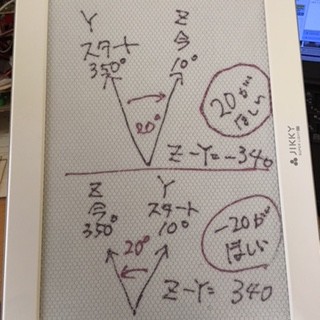 Y
スタート
350°
Z
今
10°
20°
20が
ほしい
Z-Y=-340
JIKKY
Z
今
350°
Y
スタート
10°
20°
-20が
ほしい
Z-Y= 340